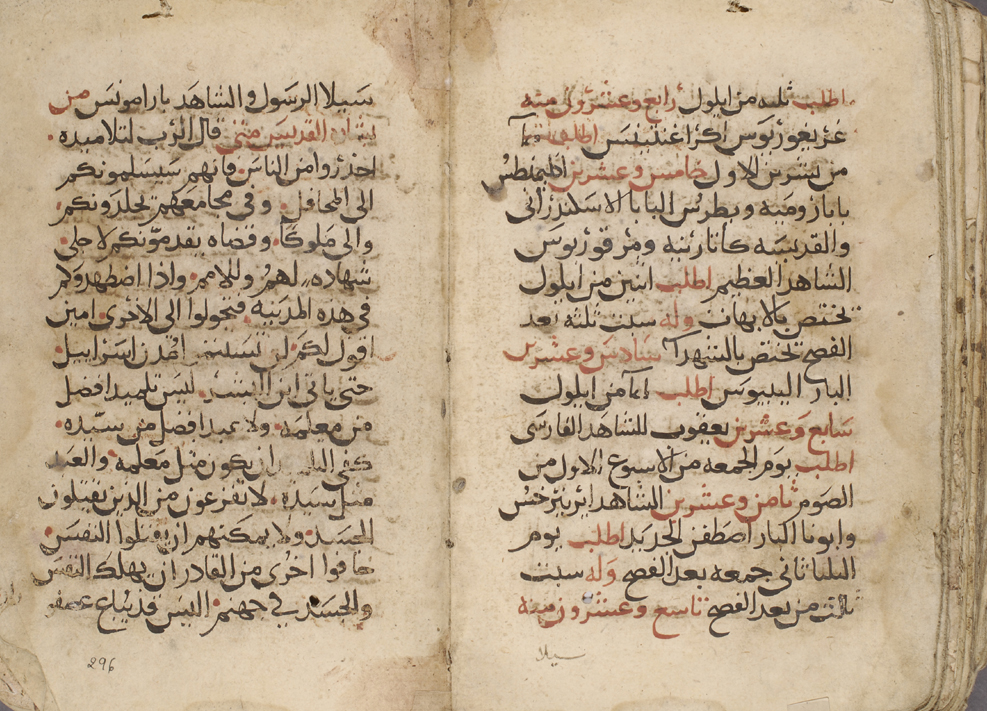 اطلب ثلثه من ايلول رابع وعشرون منه
غريغوريوس اكراغنتينس اطلب
من تشرين الاول خامس وعشرين اقليمنطس
بابا روميه وبطرس البابا الاسكندراني
والقديسه كاتارينه ومرقوريوس
الشاهد العظيم اطلب اثنين من ايلول
تختص بالابهات وله سبت ثلثه بعد
الفصح تختص بالشهدآ سادس وعشرين
البار اليبيوس اطلب من ايلول
سابع وعشرين يعقوب للشاهد الفارسى
اطلب يوم الجمعه من الاسبوع الاول من
الصوم ثامن وعشرين الشاهد ايرينرخس
وابونا البار اصطفن الجديد اطلب يوم
الثلثا ثاني جمعه بعد الفصح وله سبت
ثالث من بعد الفصح تاسع وعشرون منه
سيلا
سيلا الرسول والشاهد بارامونس من
بشارة القديس متى قال الرب لتلاميده
احذروا من الناس فانهم سيسلمونكم
الى المحافل وفي مجامعهم يجلدونكم
والى ملوكا وقضاه يقدمونكم لاجلي
شهاده لهم وللامم واذا اضطهدوكم
في هذه المدينه فتحولوا الى الاخرى امين
اقول لكم لن تستتم مدن اسراييل
حتى ياتى ابن البشر ليس تلميد افضل
من معلمه ولا عبد افضل من سيده
كفى التلميد ان يكون مثل معلمه والعبد
مثل سيده لا تفزعون من الدين يقتلون
الجسد ولا يمكنهم ان يقتلوا النفس
خافوا اخرى من القادر ان يهلك النفس
والجسد في جهنم اليس قد يباع عصفو
296